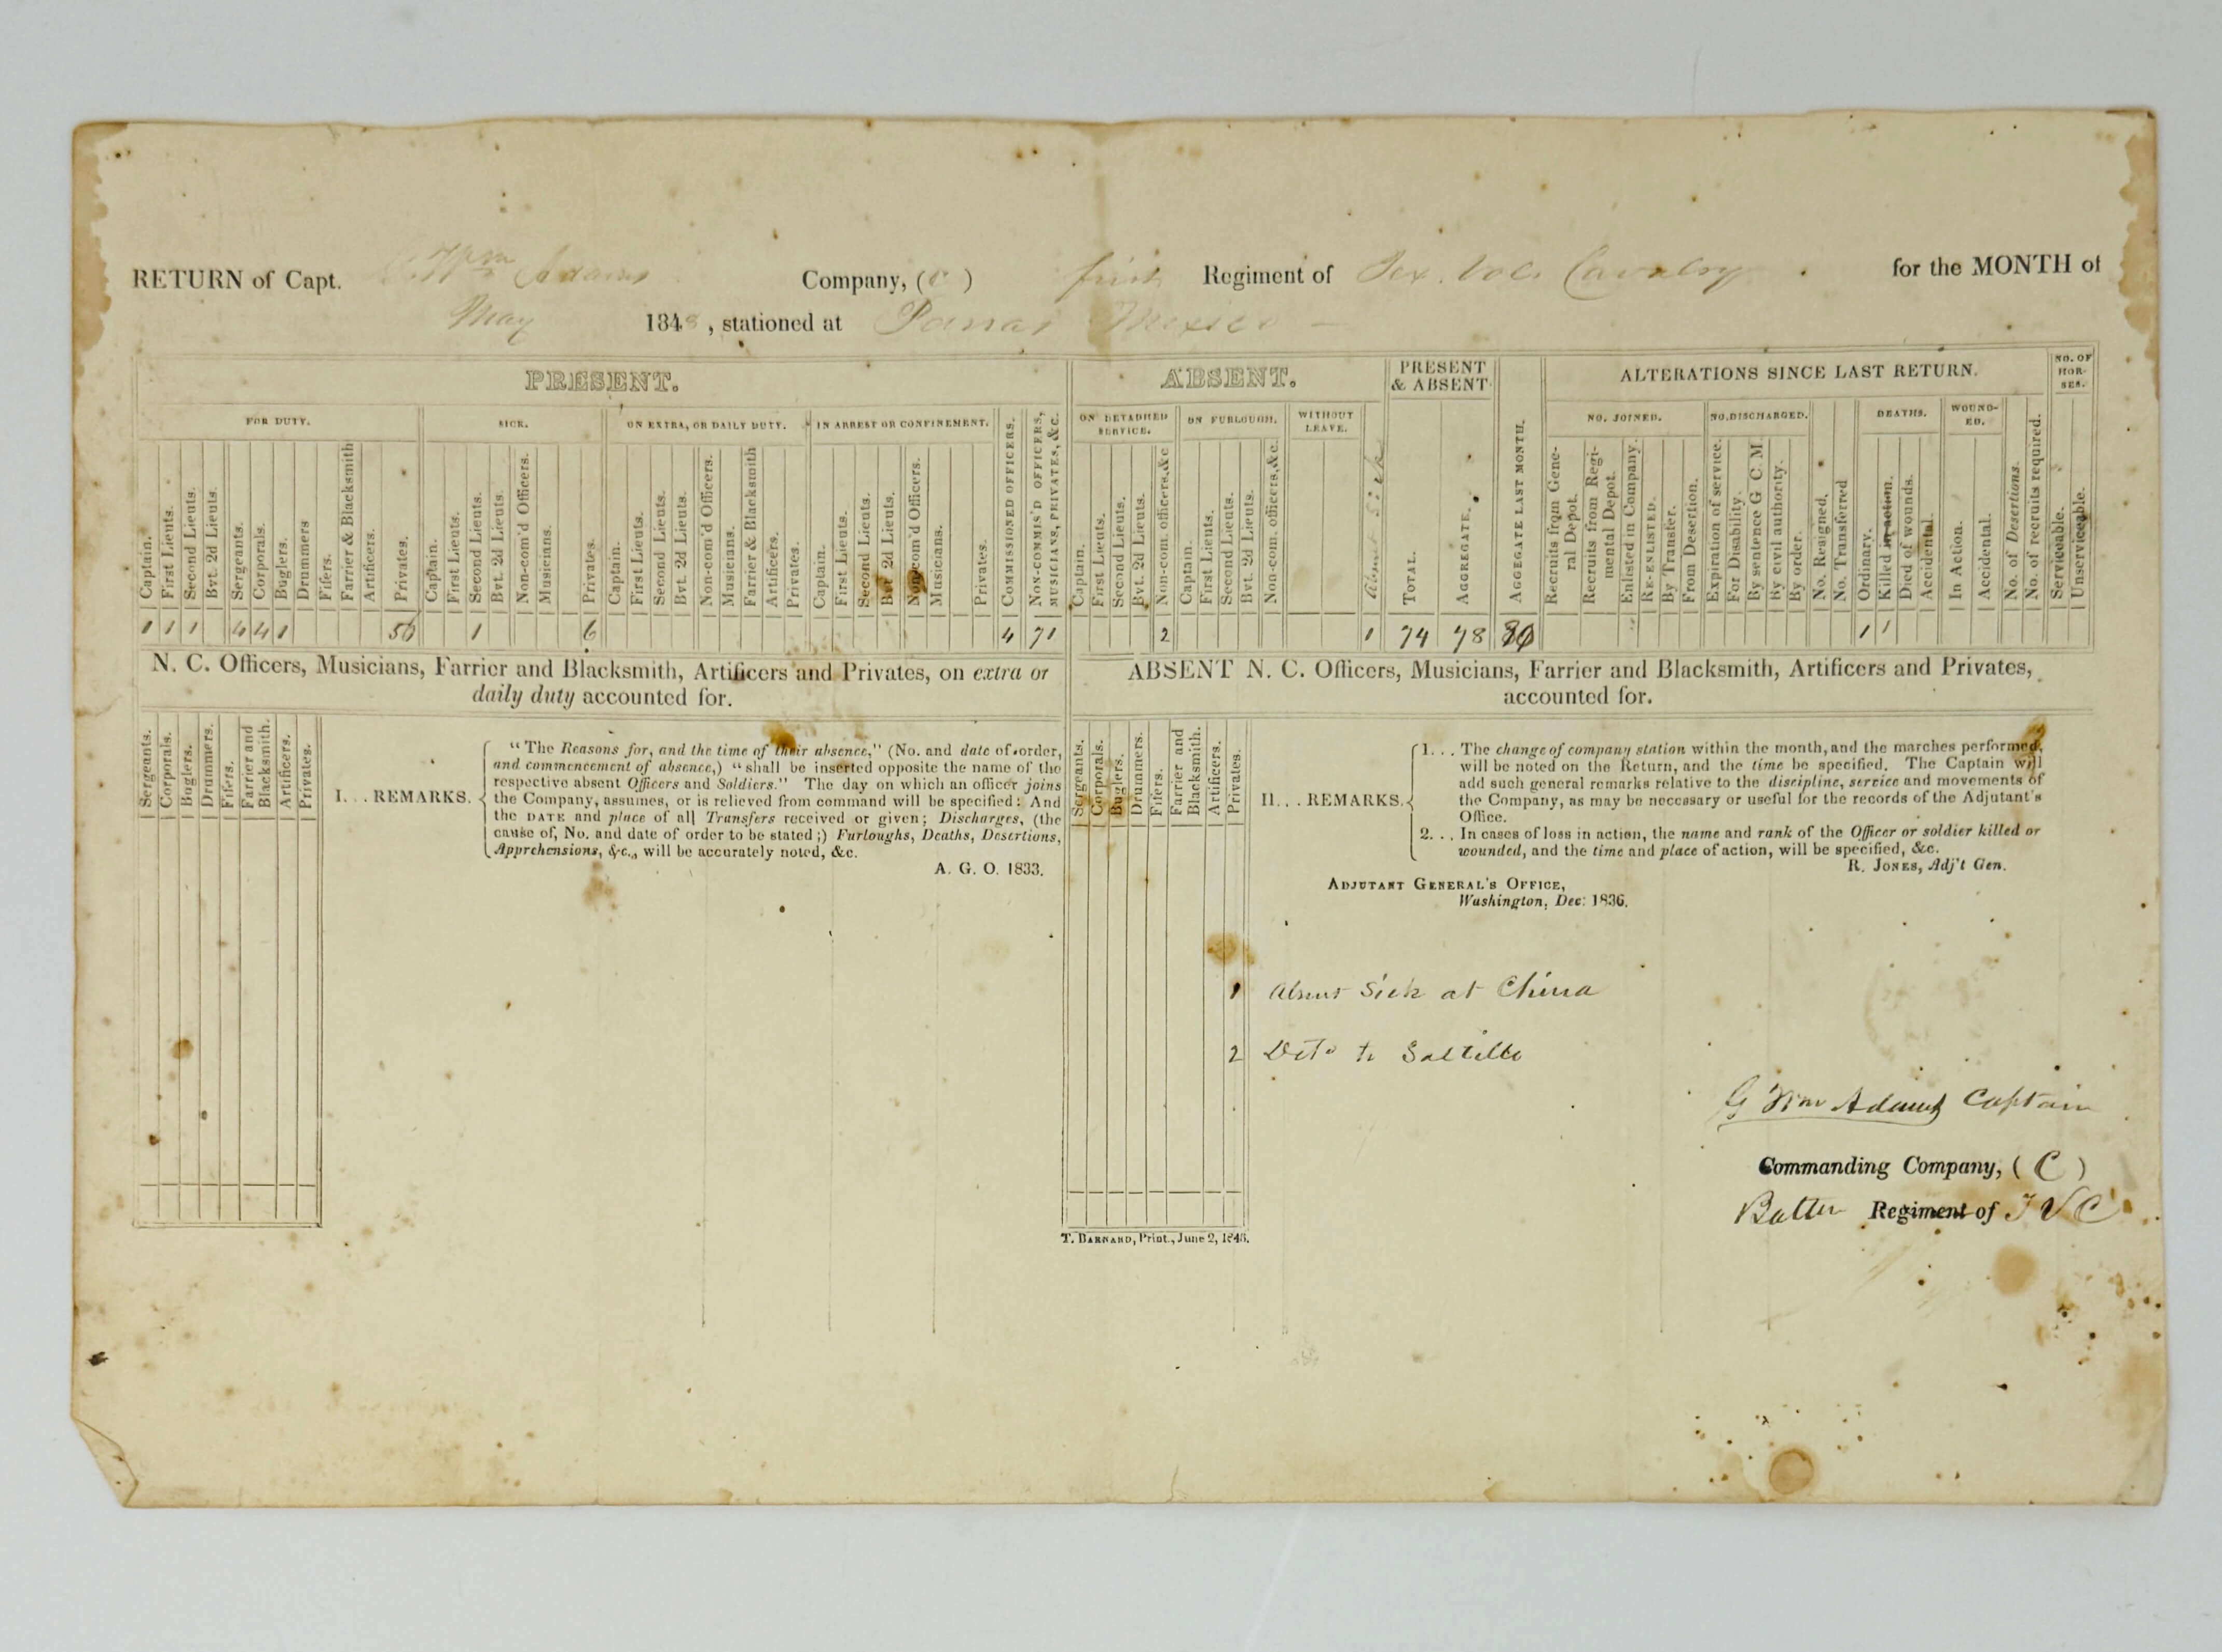 RETURN of Capt. Wm Adams Company, (C) first Regiment of Tex. Vols Cavalry . for the MONTH of
May 1848, stationed at Parras Mexico —
PRESENT.
ABSENT.
PRESENT & ABSENT
ALTERATIONS SINCE LAST RETURN.
NO. OF HORSES.
FOR DUTY.
SICK.
ON EXTRA, OR DAILY DUTY.
IN ARREST OR CONFINEMENT.
COMMISSIONED OFFICERS.
NON-COMMIS'D OFFICERS, MUSICIANS, PRIVATES, &C.
ON DETACHED SERVICE.
ON FURLOUGH.
WITHOUT LEAVE.
AGGREGATE LAST MONTH.
NO. JOINED.
NO. DISCHARGED.
DEATHS.
WOUNDED.
Captain. First Lieuts. Second Lieuts. Bvt. 2d Lieuts. Sergeants. Corporals. Buglers. Drummers Fifers. Farrier & Blacksmith Artificers. Privates.
Captain. First Lieuts. Second Lieuts. Bvt. 2d Lieuts. Non-com'd Officers. Musicians. Privates.
Captain. First Lieuts. Second Lieuts. Bvt. 2d Lieuts. Non-com'd Officers. Musicians. Farrier & Blacksmith Artificers. Privates.
Captain. First Lieuts. Second Lieuts. Bvt 2d Lieuts. Non-com'd Officers. Musicians. Privates.
Captain. First Lieuts. Second Lieuts. Bvt. 2d Lieuts. Non-com. officers, &c
Captain. First Lieuts. Second Lieuts. Bvt. 2d Lieuts. Non-com. officers, &c.
Absent Sick
TOTAL. AGGREGATE.
Recruits from General Depot. Recruits from Regimental Depot. Enlisted in Company. RE-ENLISTED. By Transfer. From Desertion.
Expiration of service. For Disability. By sentence G C M By civil authority. By order.
No. Resigned. No. Transferred
Ordinary. Killed in action. Died of wounds. Accidental.
In Action. Accidental.
No. of Desertions. No. of recruits required.
Serviceable. Unserviceable.
1 1 1 4 4 1 56 1 6 4 71 2 1 74 78 80 1 1
N. C. Officers, Musicians, Farrier and Blacksmith, Artificers and Privates, on extra or
daily duty accounted for.
ABSENT N. C. Officers, Musicians, Farrier and Blacksmith, Artificers and Privates,
accounted for.
Sergeants. Corporals. Buglers. Drummers. Fifers. Farrier and Blacksmith. Artificers. Privates.
I. . . REMARKS.
"The Reasons for, and the time of their absence," (No. and date of order,
and commencement of absence,) "shall be inserted opposite the name of the
respective absent Officers and Soldiers." The day on which an officer joins
the Company, assumes, or is relieved from command will be specified: And
the DATE and place of all Transfers received or given; Discharges, (the
cause of, No. and date of order to be stated;) Furloughs, Deaths, Desertions,
Apprehensions, &c., will be accurately noted, &c.
A. G. O. 1833.
Sergeants. Corporals. Buglers. Drummers. Fifers. Farrier and Blacksmith. Artificers. Privates.
II. . . REMARKS.
1. . . The change of company station within the month, and the marches performed,
will be noted on the Return, and the time be specified. The Captain will
add such general remarks relative to the discipline, service and movements of
the Company, as may be necessary or useful for the records of the Adjutant's
Office.
2. . . In cases of loss in action, the name and rank of the Officer or soldier killed or
wounded, and the time and place of action, will be specified, &c.
R. JONES, Adj't Gen.
ADJUTANT GENERAL'S OFFICE,
Washington, Dec: 1836.
1 Absent Sick at China
2 Dets to Saltillo
G Wm Adams Captain
Commanding Company, (C)
Batln Regiment of T V C
T. BARNARD, Print., June 2, 1846.